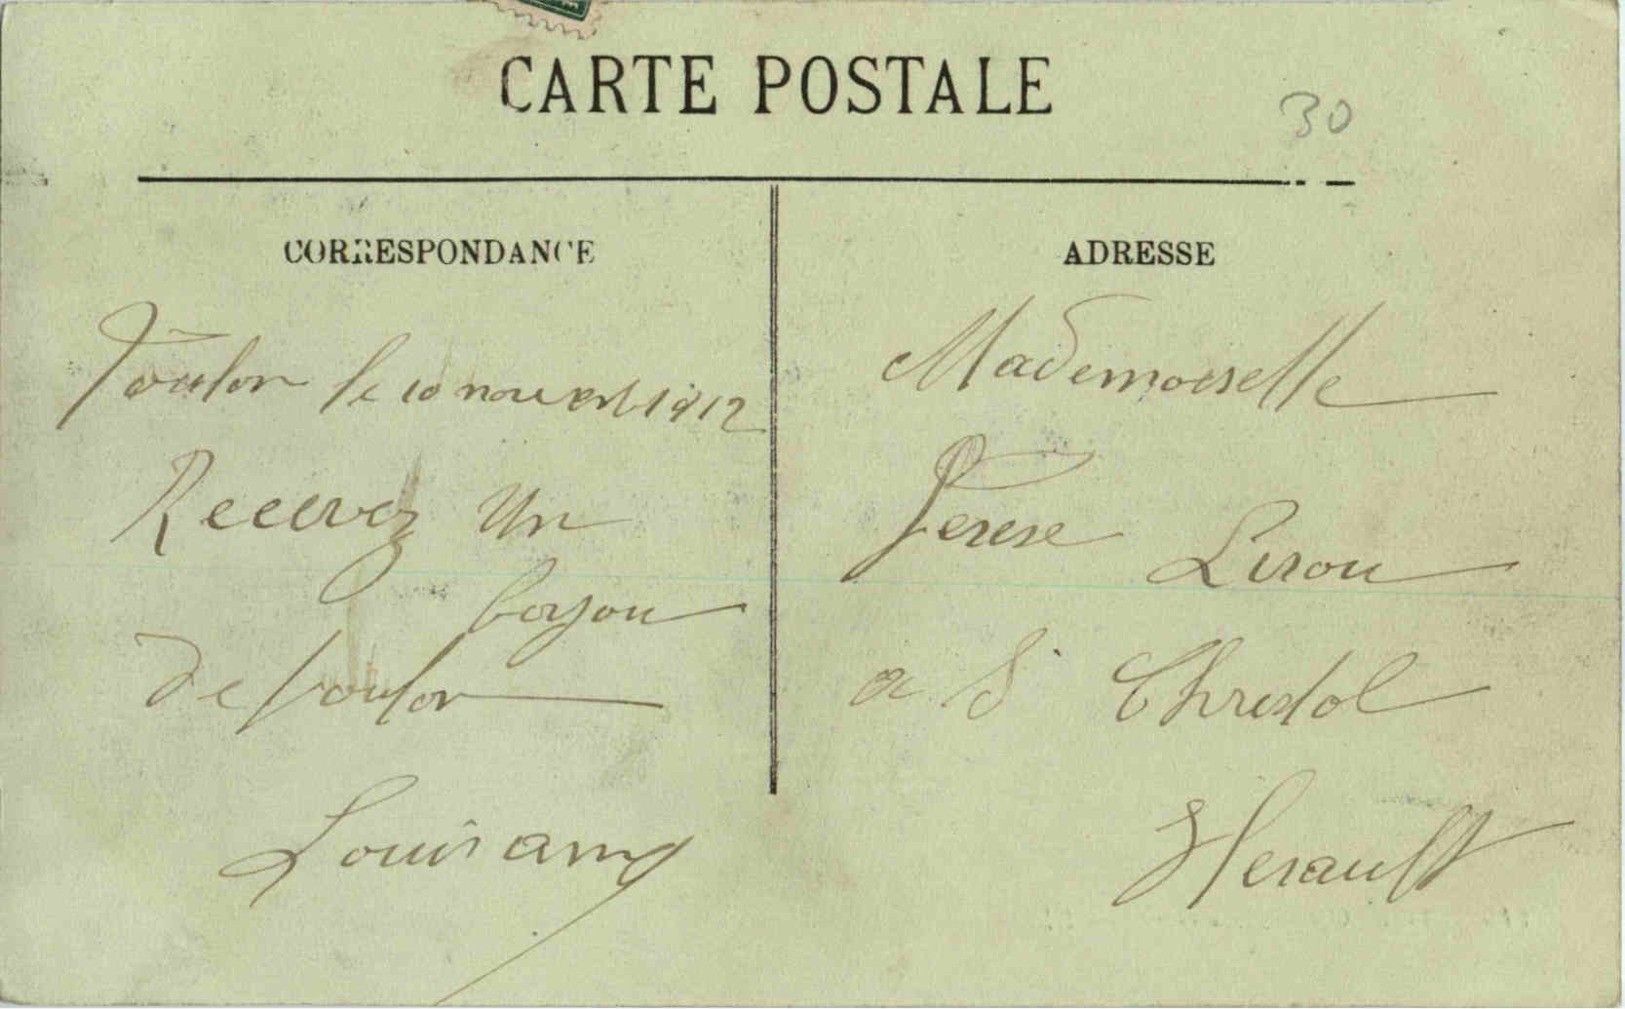 CARTE POSTALE
30
CORRESPONDANCE
Toulon le 10 novembre 1912
Recevez un
bojou
de toulon
Louis amy
ADRESSE
Mademoiselle
Terese Lirou
a St Christol
Herault